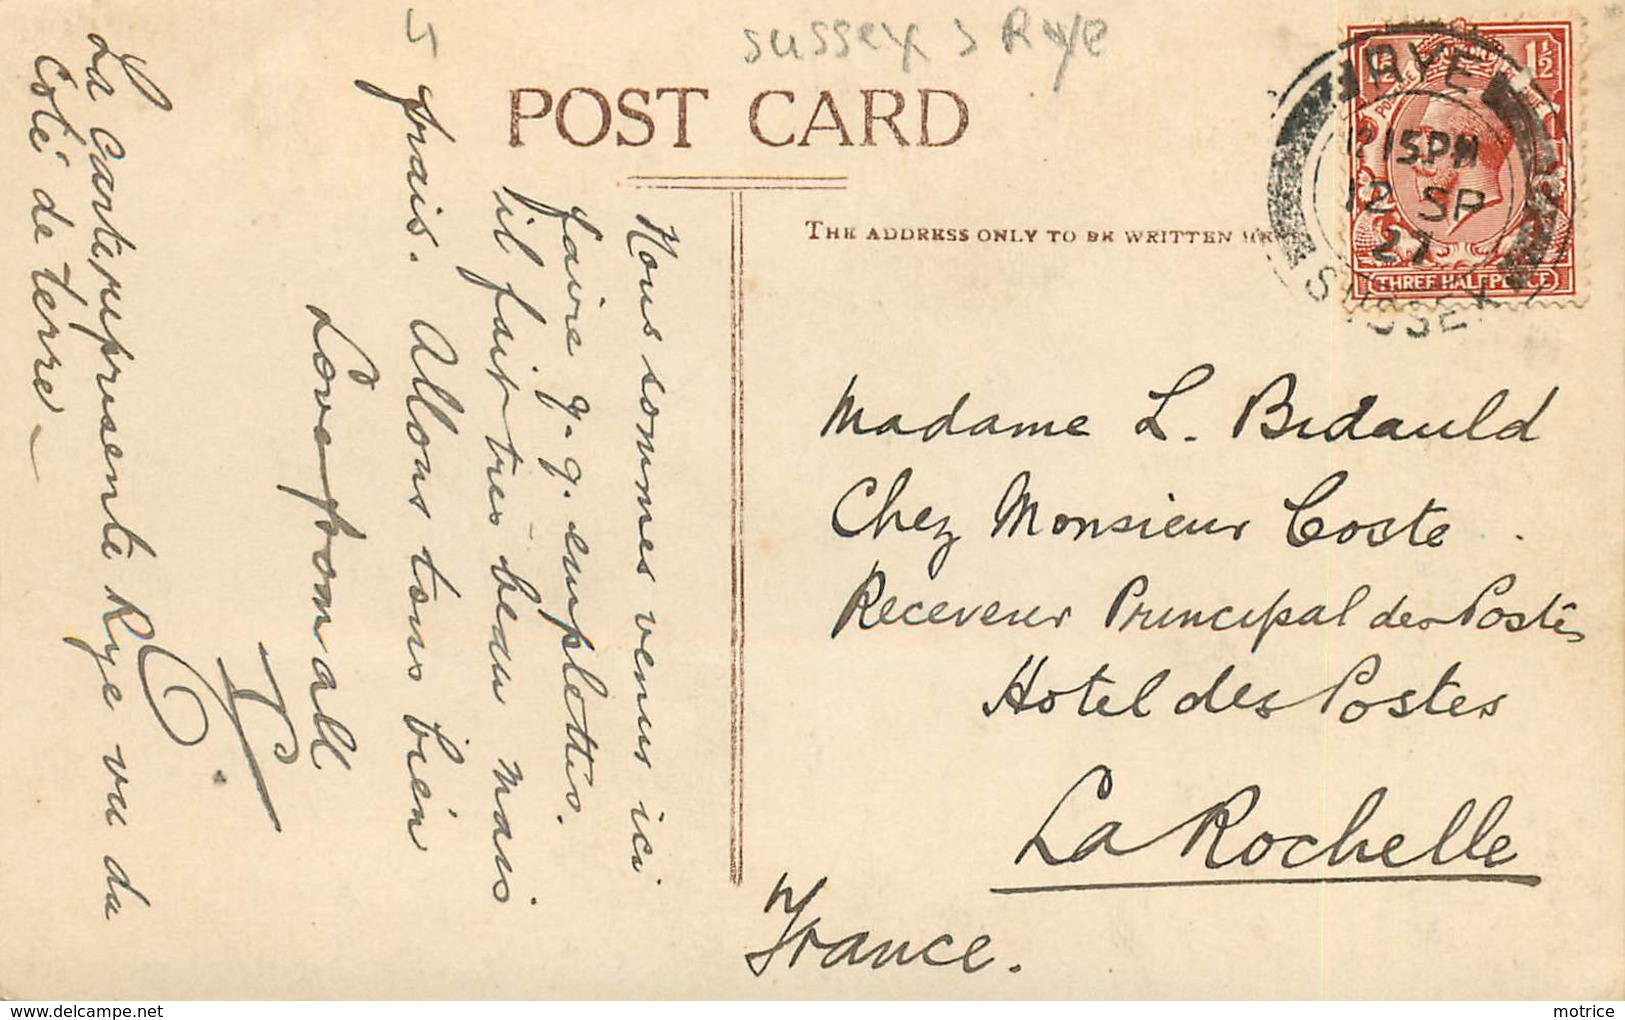 sussex > Rye
POST CARD
THE ADDRESS ONLY TO BE WRITTEN HE
RYE
12 15 PM
12 SP
27
SUSSEX
1½
POSTAGE
THREE HALFPENCE
Nous sommes venus ici
faire q. q. emplettes.
il fait très beau mais
frais. Allons tous bien
Love from all
La carte représente Rye vu du
coté de terre –
Madame L. Bidauld
Chez Monsieur Coste
Receveur Principal des Postes
Hotel des Postes
La Rochelle
France.
matrice